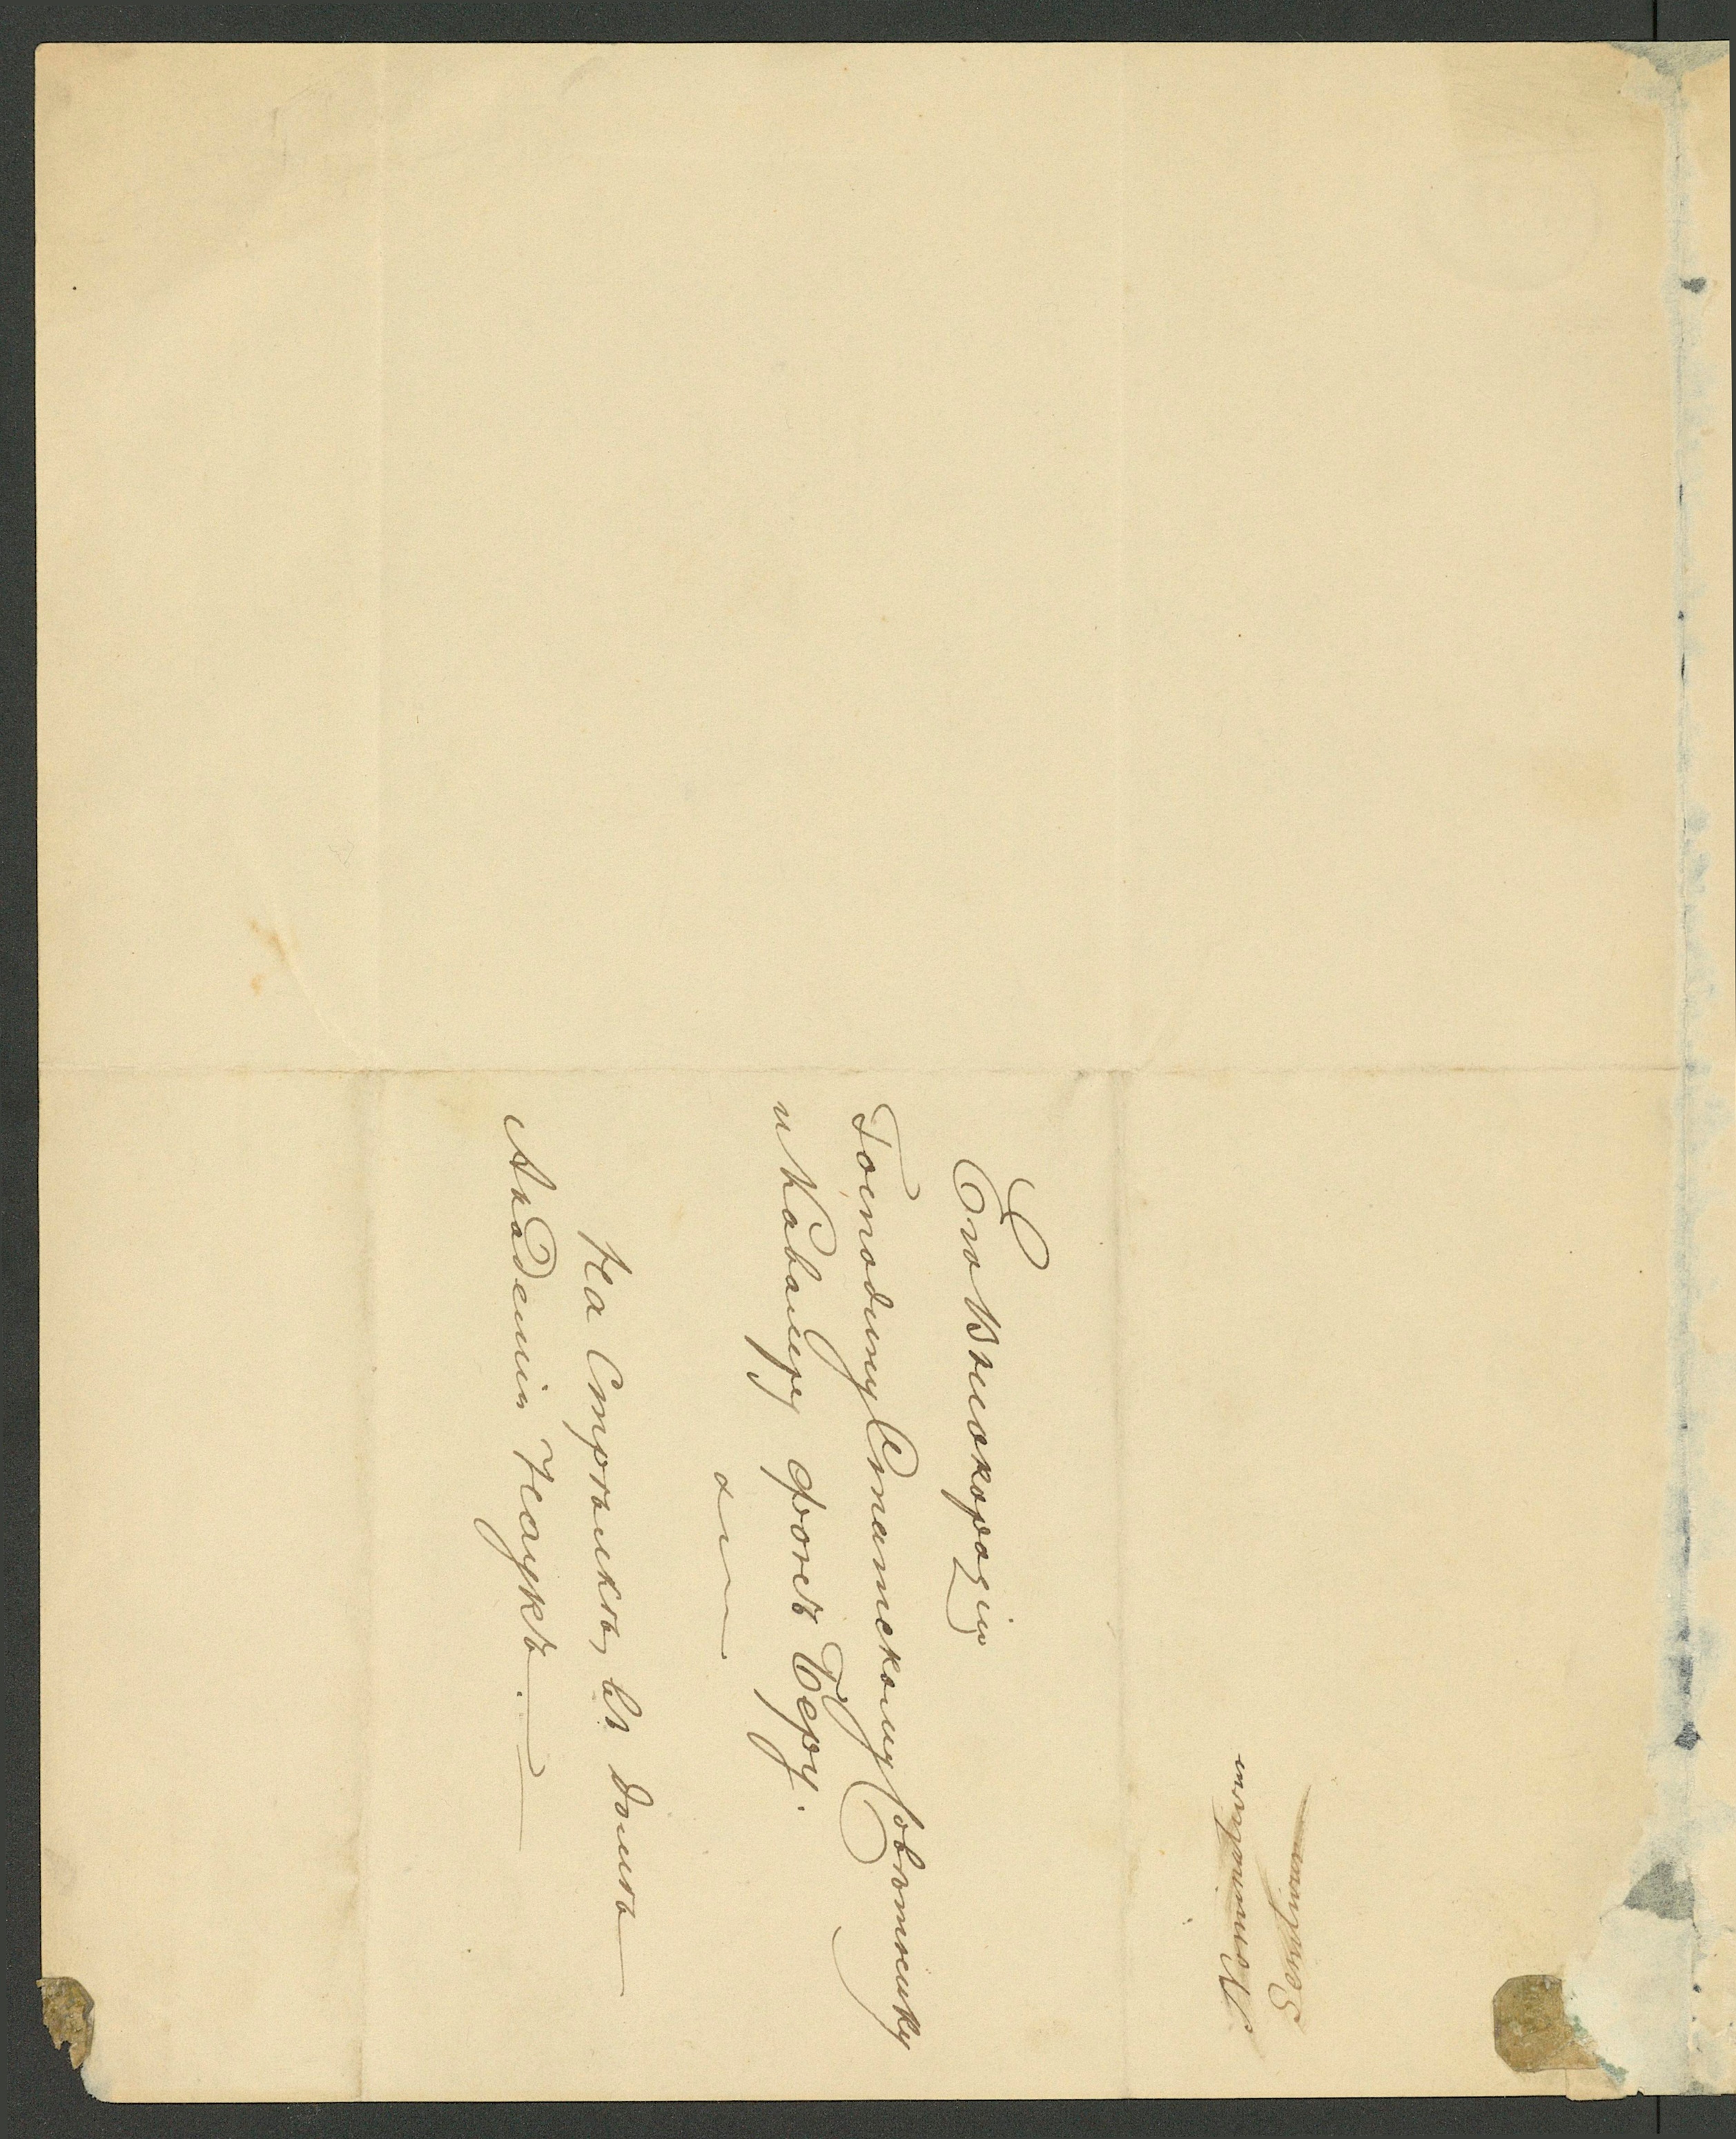 Его Высокородiю
Господину Статскому Совѣтнику
и Кавалеру фонъ Беру.
На Стрѣлкѣ, въ домѣ
Академiи Наукъ.